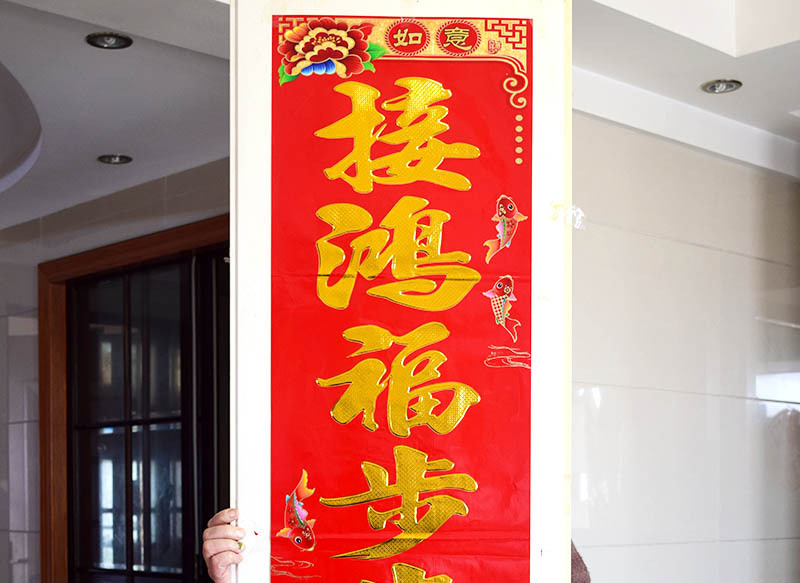 如意
接鸿福步